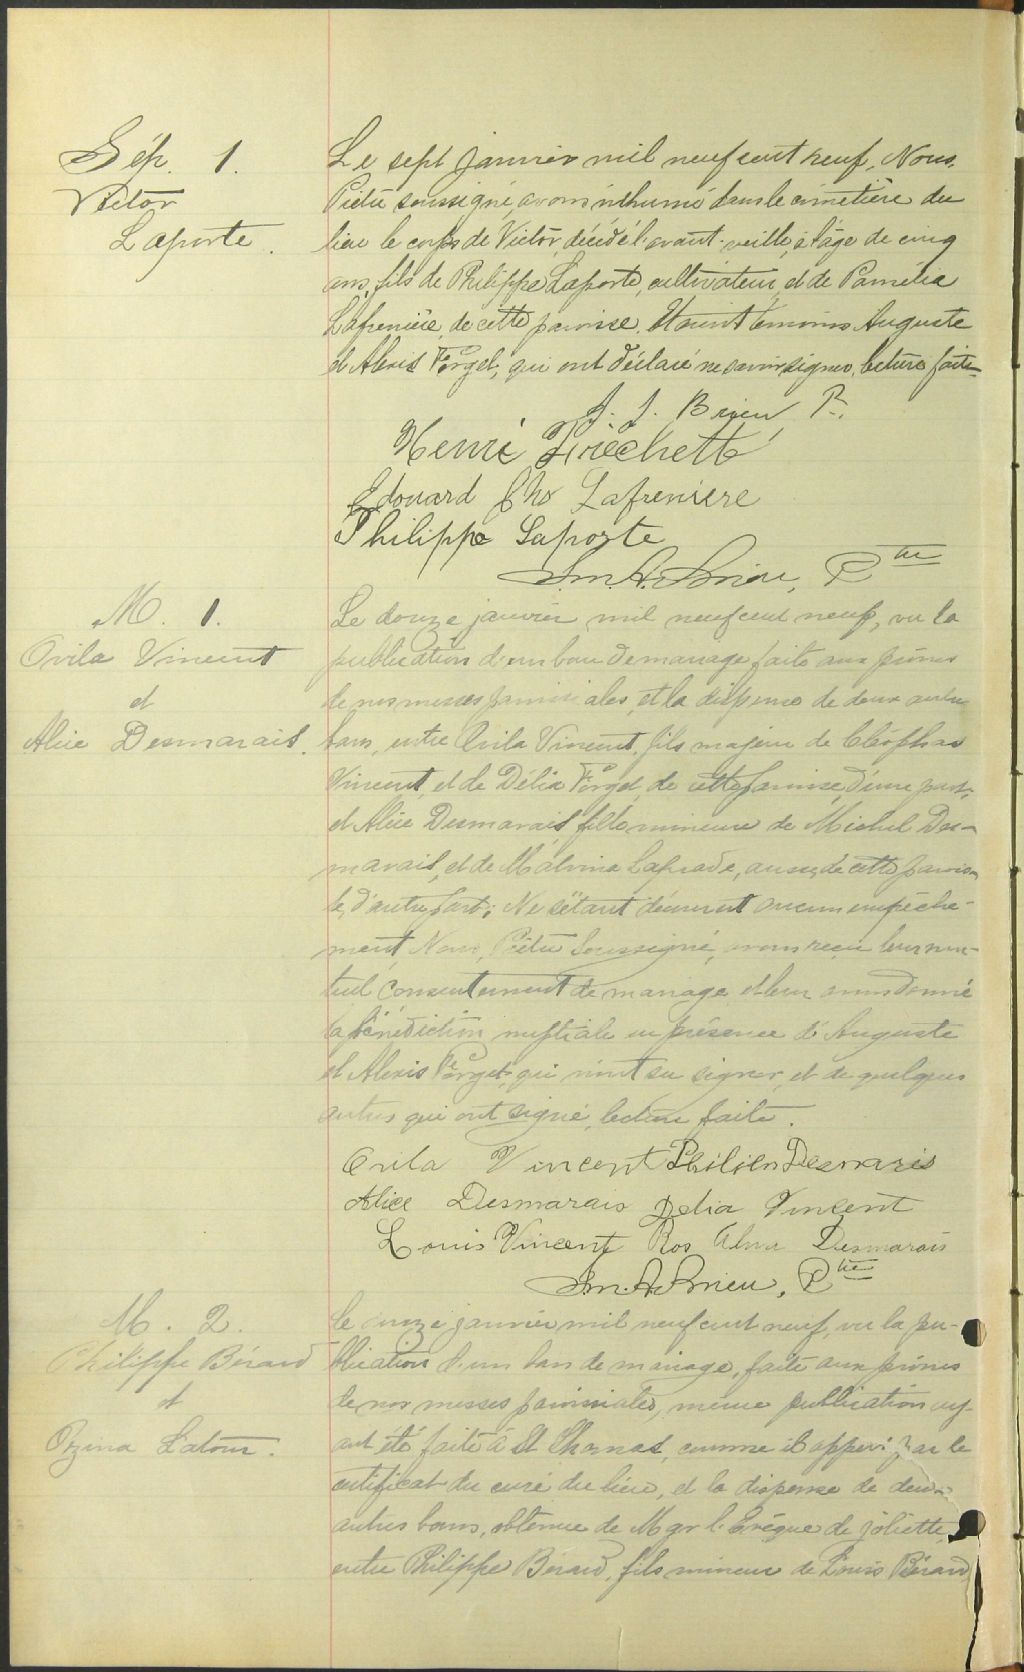 Sép. 1.
Victor
Laporte.
Le sept janvier mil neuf cent neuf, Nous,
Prêtre soussigné, avons inhumé dans le cimetière du
lieu le corps de Victor, décédé l'avant-veille, à l'âge de cinq
ans, fils de Philippe Laporte, cultivateur, et de Pamélia
Lafrenière, de cette paroisse. Etaient témoins Auguste
et Alexis Forget, qui ont déclaré ne savoir signer, lecture faite
J. J. Brien P.
Henri Fréchette
Edouard Chs Lafreniere
Philippe Laporte
Jm. A. Brien, Ptre
M. 1.
Ovila Vincent
et
Alice Desmarais.
Le douze janvier mil neuf cent neuf, vu la
publication d'un ban de mariage faite aux prônes
de nos messes paroissiales, et la dispense de deux autres
bans, entre Ovila Vincent, fils majeur de Cléophas
Vincent, et de Délia Forget, de cette paroisse, d'une part,
et Alice Desmarais, fille mineure de Michel Des-
marais, et de Malvina Laprade, aussi de cette parois-
se, d'autre part; Ne s'étant découvert aucun empêche-
ment, Nous, Prêtre soussigné, avons reçu leur mu-
tuel consentement de mariage et leur avons donné
la bénédiction nuptiale en présence d'Auguste
et Alexis Forget, qui n'ont su signer, et de quelques
autres qui ont signé, lecture faite.
Ovila Vincent Philien Desmarais
Alice Desmarais Delia Vincent
Louis Vincent Ros Alma Desmarais
Jm. A. Brien, Ptre
M. 2.
Philippe Bérard
et
Ozina Latour.
Le onze janvier mil neuf cent neuf, vu la pu-
blication d'un ban de mariage, faite aux prônes
de nos messes paroissiales, même publication ay-
ant été faite à St Thomas, comme il appert par le
certificat du curé du lieu, et la dispense de deux
autres bans, obtenue de Mgr l'Evêque de Joliette,
entre Philippe Bérard, fils mineur de Louis Bérard,